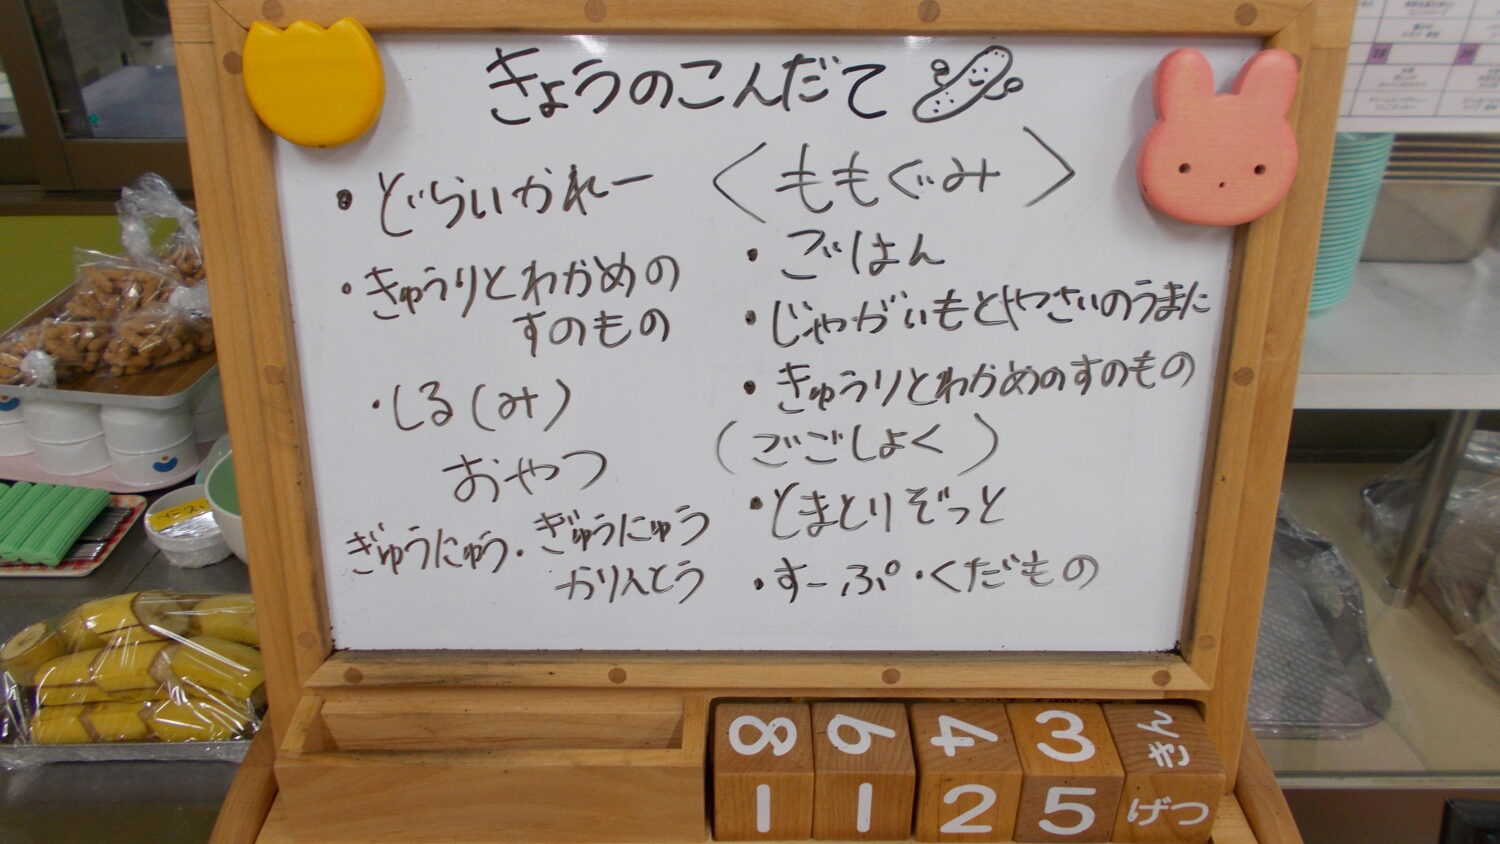 きょうのこんだて
・どらいかれー
・きゅうりとわかめの
すのもの
・しる(み)
おやつ
ぎゅうにゅう・ぎゅうにゅう
かりんとう
〈ももぐみ〉
・ごはん
・じゃがいもとやさいのうまに
・きゅうりとわかめのすのもの
(ごごしょく)
・とまとりぞっと
・すーぷ・くだもの
8 6 4 3 きん
1 1 2 5 げつ